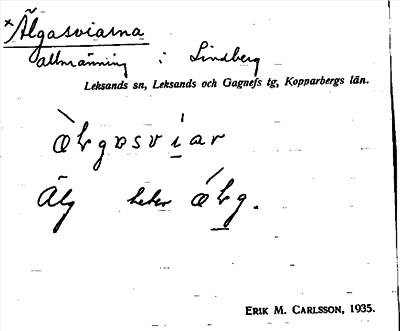 ×Älgasviarna
allmänning i Lindberg
Leksands sn, Leksands och Gagnefs tg, Kopparbergs län.
æ̀ƚgɒsviar
Älg heter ǽƚg.
ERIK M. CARLSSON, 1935.